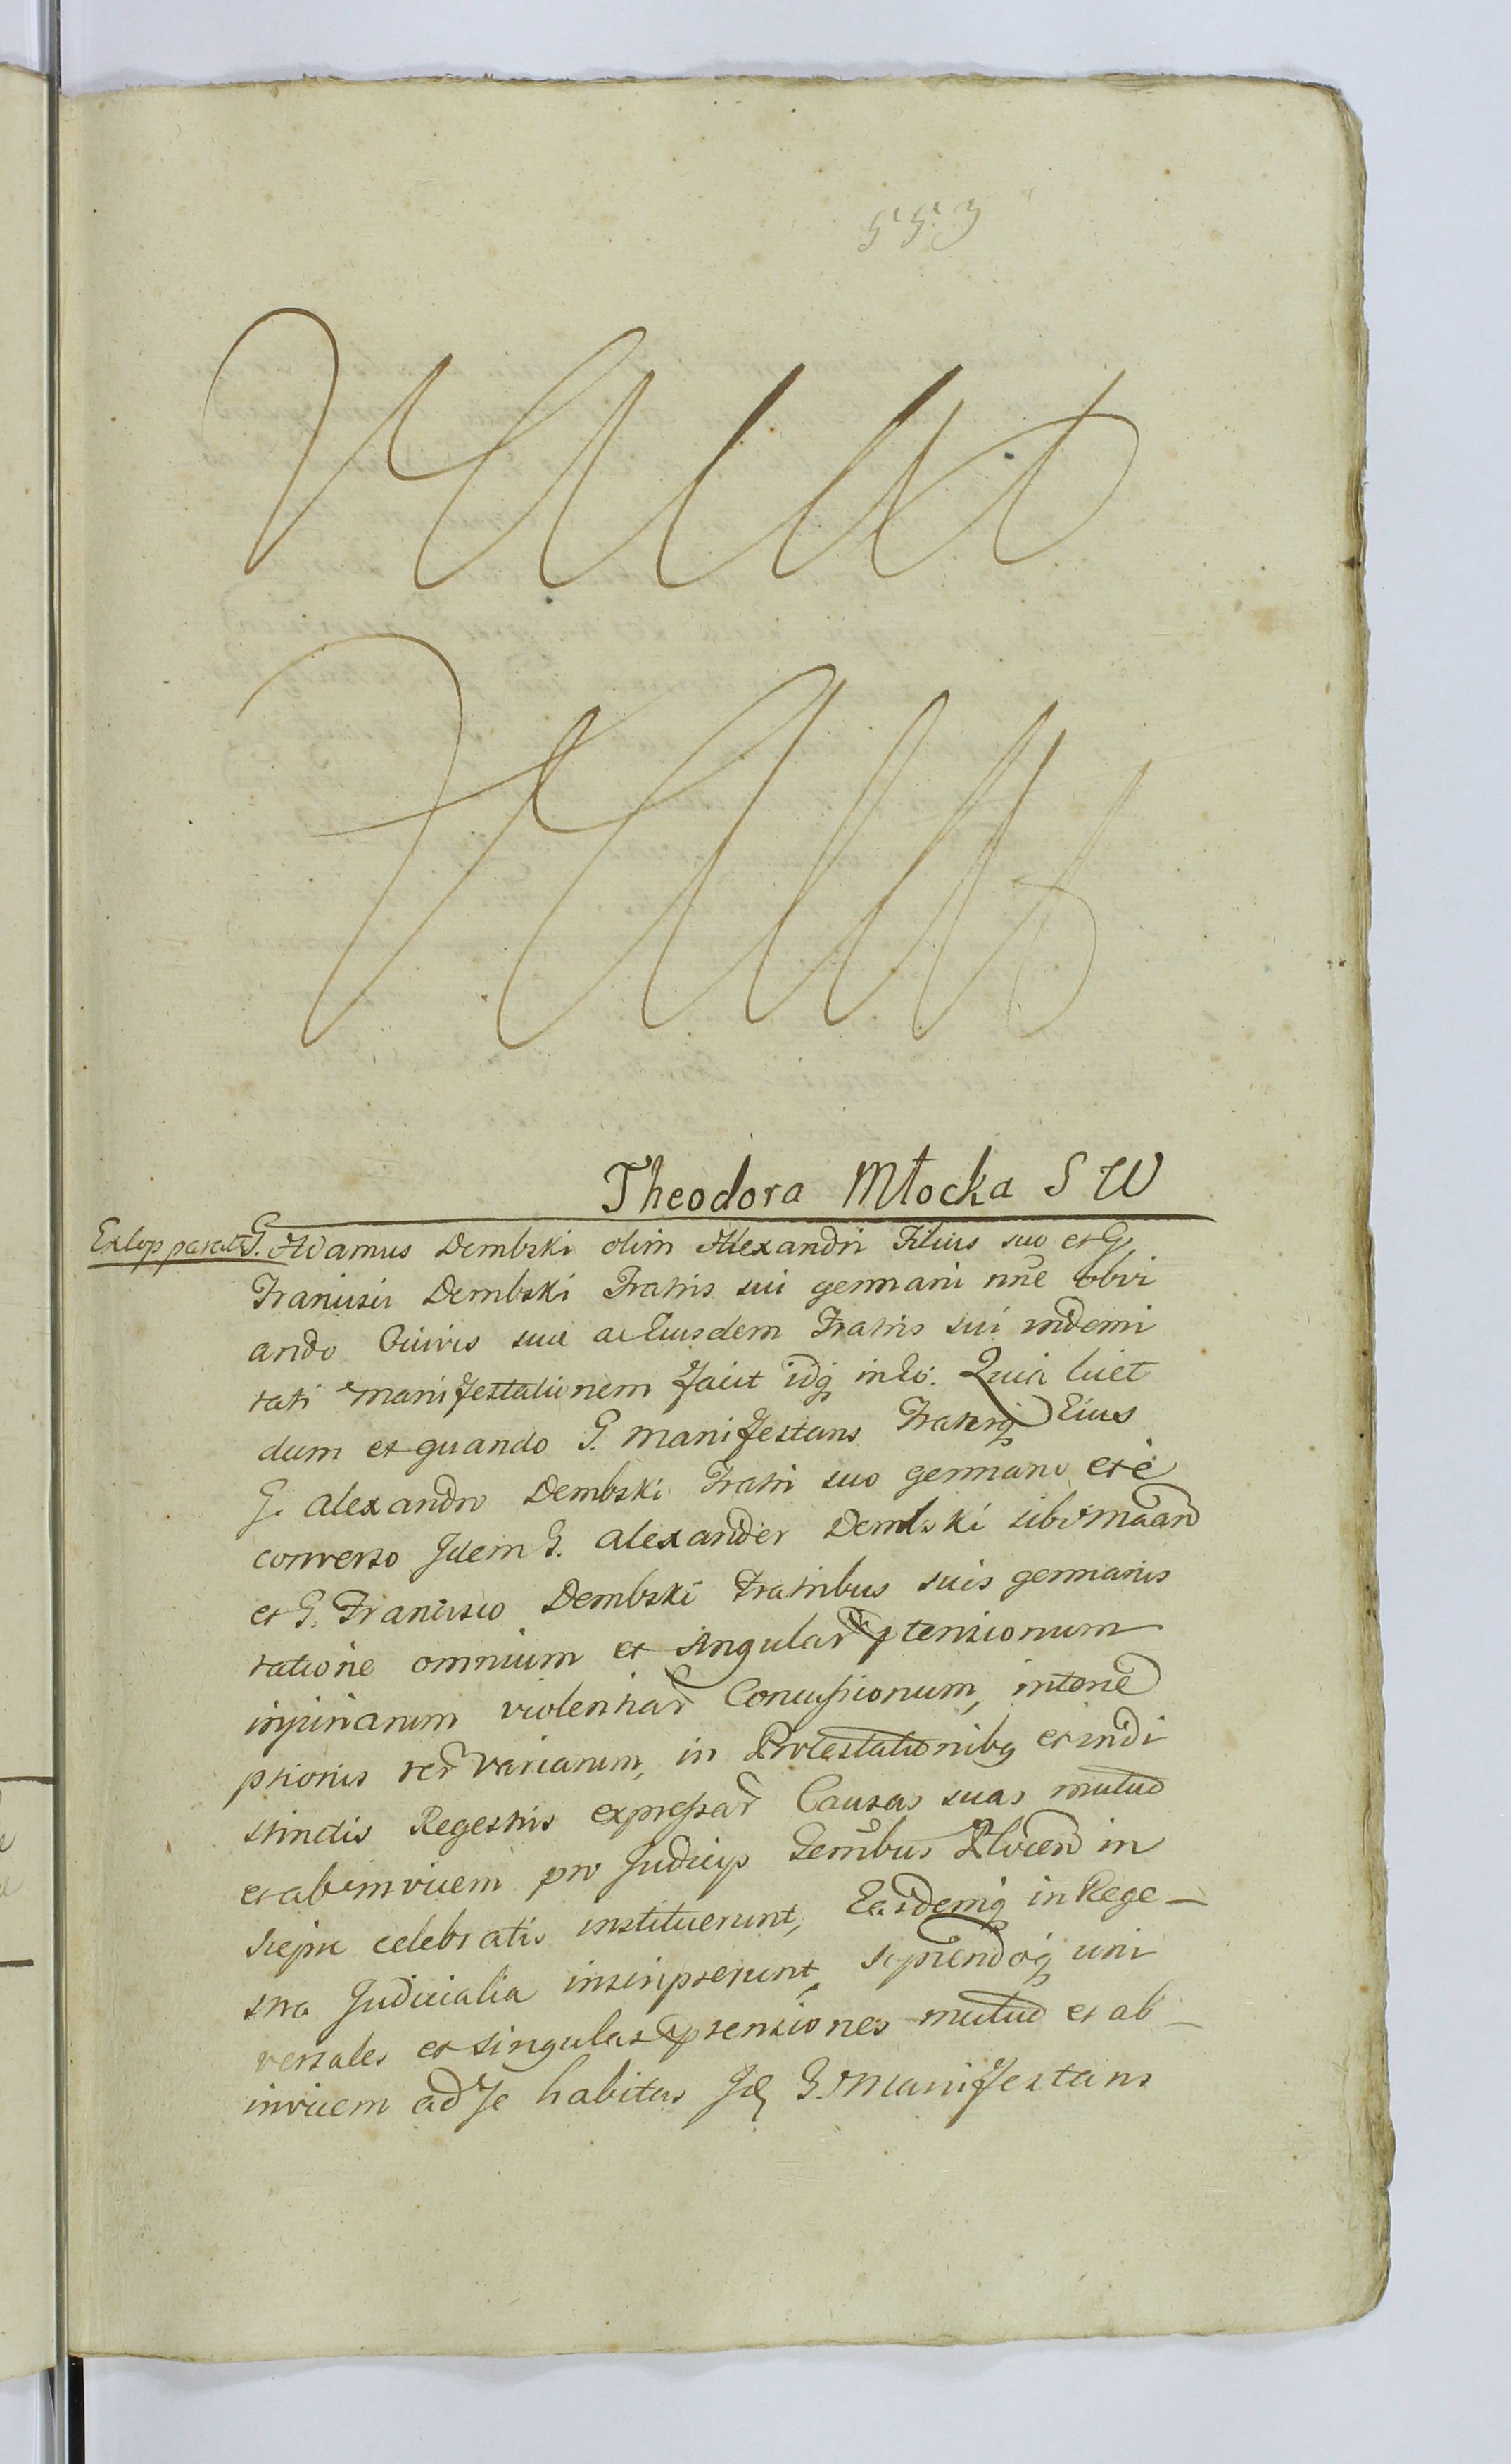 553
Theodora Młocka S W
G. Adamus Dembski olim Alexandri Filius suo et G.
Francisci Dembski Fratris sui germani nñe obvi
ando Cuivis suæ ac Eiusdem Fratris sui indemni
tati manifestationem facit idq in Eo. Quia licet
dum et quando G. Manifestans Fraterq Eius
G. Alexandro Dembski Fratri suo germano et è
converso Idem G. Alexander Dembski sibi
et G. Francisco Dembski Fratribus suis germanis
ratione omnium et singular ptensionum
injuriarum violentiar Concussionum, interce
ptionis rer variarum, in Protestationibq et indi
stinctis Regestris expressar Causas suas mutuo
et ab invicem pro Judicijs Temibus Plocen in
Siepie celebratis instituerunt, Easdemq in Rege-
stra Judicialia inscripserunt, sopiendoq uni
versales et singulas ptensiones mutuo et ab
invicem ad se habitas G. Manifestans